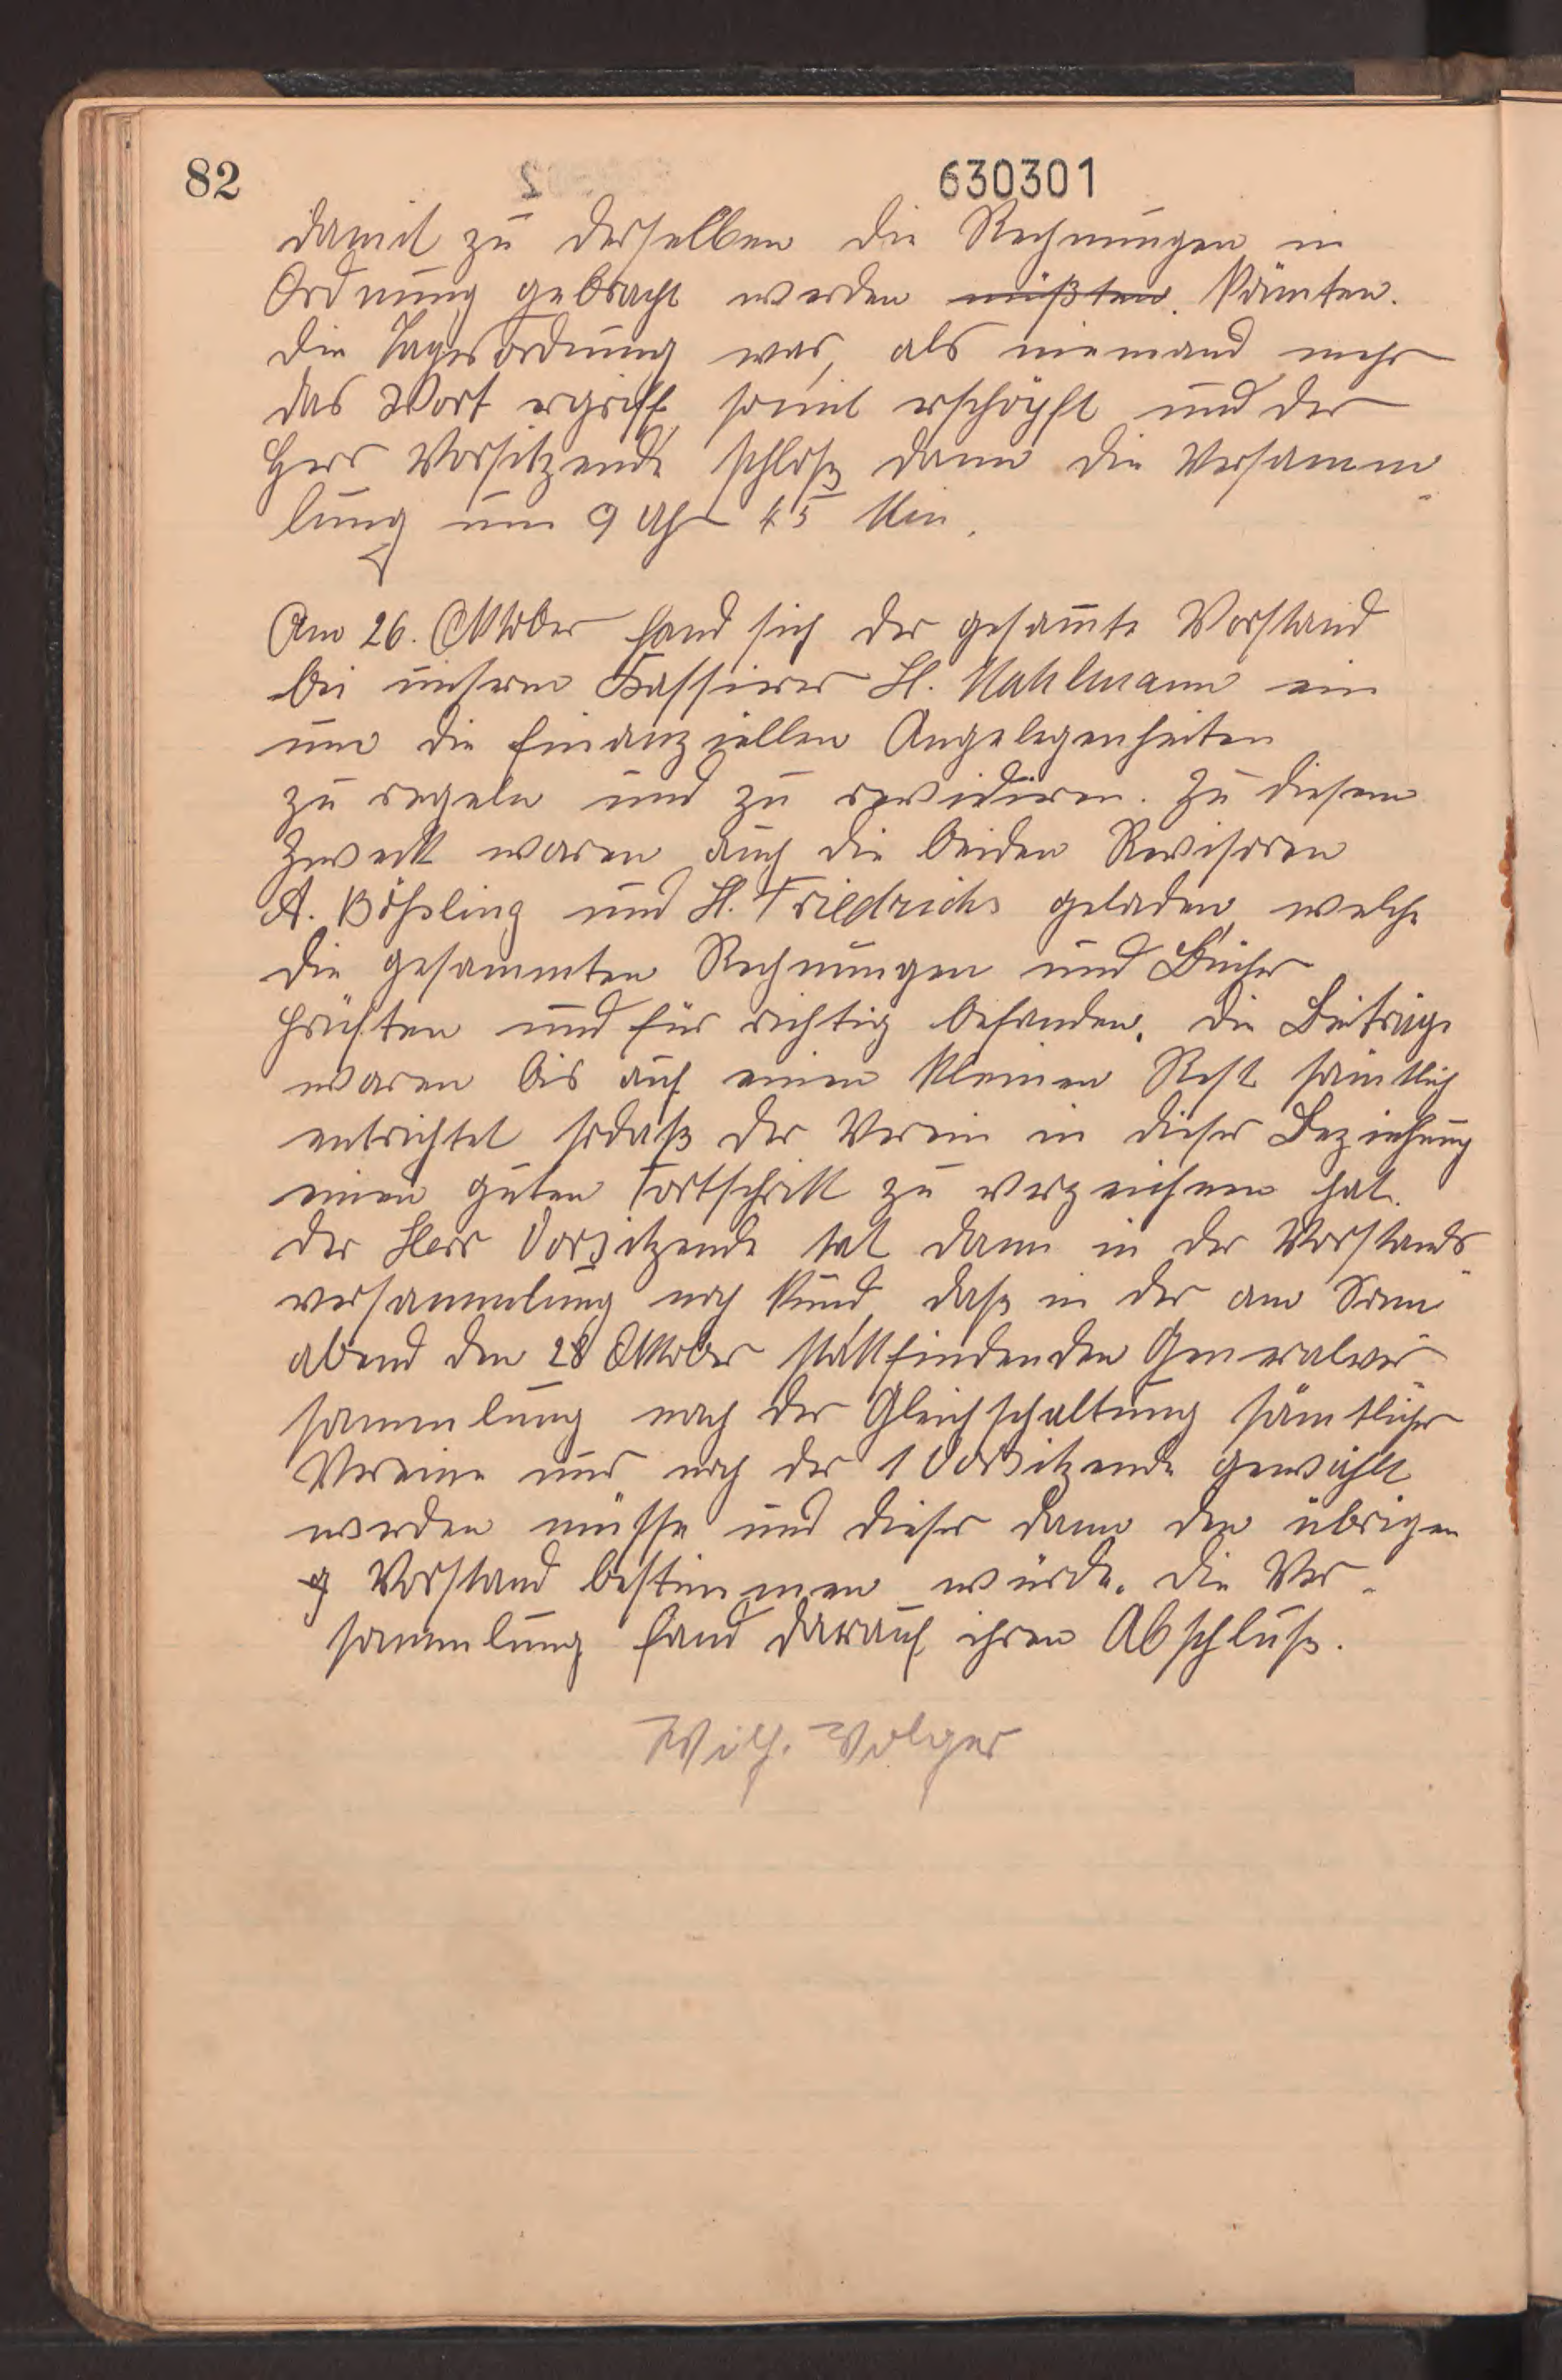 82
630301
damit zu derselben die Rechnungen in
Ordnung gebracht werden müßten. könnten.
Die Tagesordnung war, als niemand mehr
das Wort ergriff, somit erschöpft und der
Herr Vorsitzende schloß dann die Versamm-
lung um 9 Uhr 45 Min.
Am 26. Oktober fand sich der gesamte Vorstand
bei unserem Kassierer H. Mahlmann ein
um die finanziellen Angelegenheiten
zu regeln und zu revidieren. Zu diesem
Zweck waren auch die beiden Revisoren
A. Bößling und H. Friedrichs geladen, welche
die gesammten Rechnungen und Bücher
prüften und für richtig befanden. Die Beiträge
waren bis auf einen kleinen Rest sämtlich
entrichtet sodaß der Verein in dieser Beziehung
einen guten Fortschritt zu verzeichnen hat.
Der Herr Vorsitzende tat dann in der Vorstands-
versammlung noch kund, daß in der am Sonn-
abend den 28 Oktober stattfindenden Generalver-
sammlung nach der Gleichschaltung sämtlicher
Vereine nur noch der 1 Vorsitzende gewählt
werden müsse und dieser dann den übrigen
g Vorstand bestimmen würde. Die Ver-
sammlung fand darauf ihren Abschluß.
Wilh. Volger